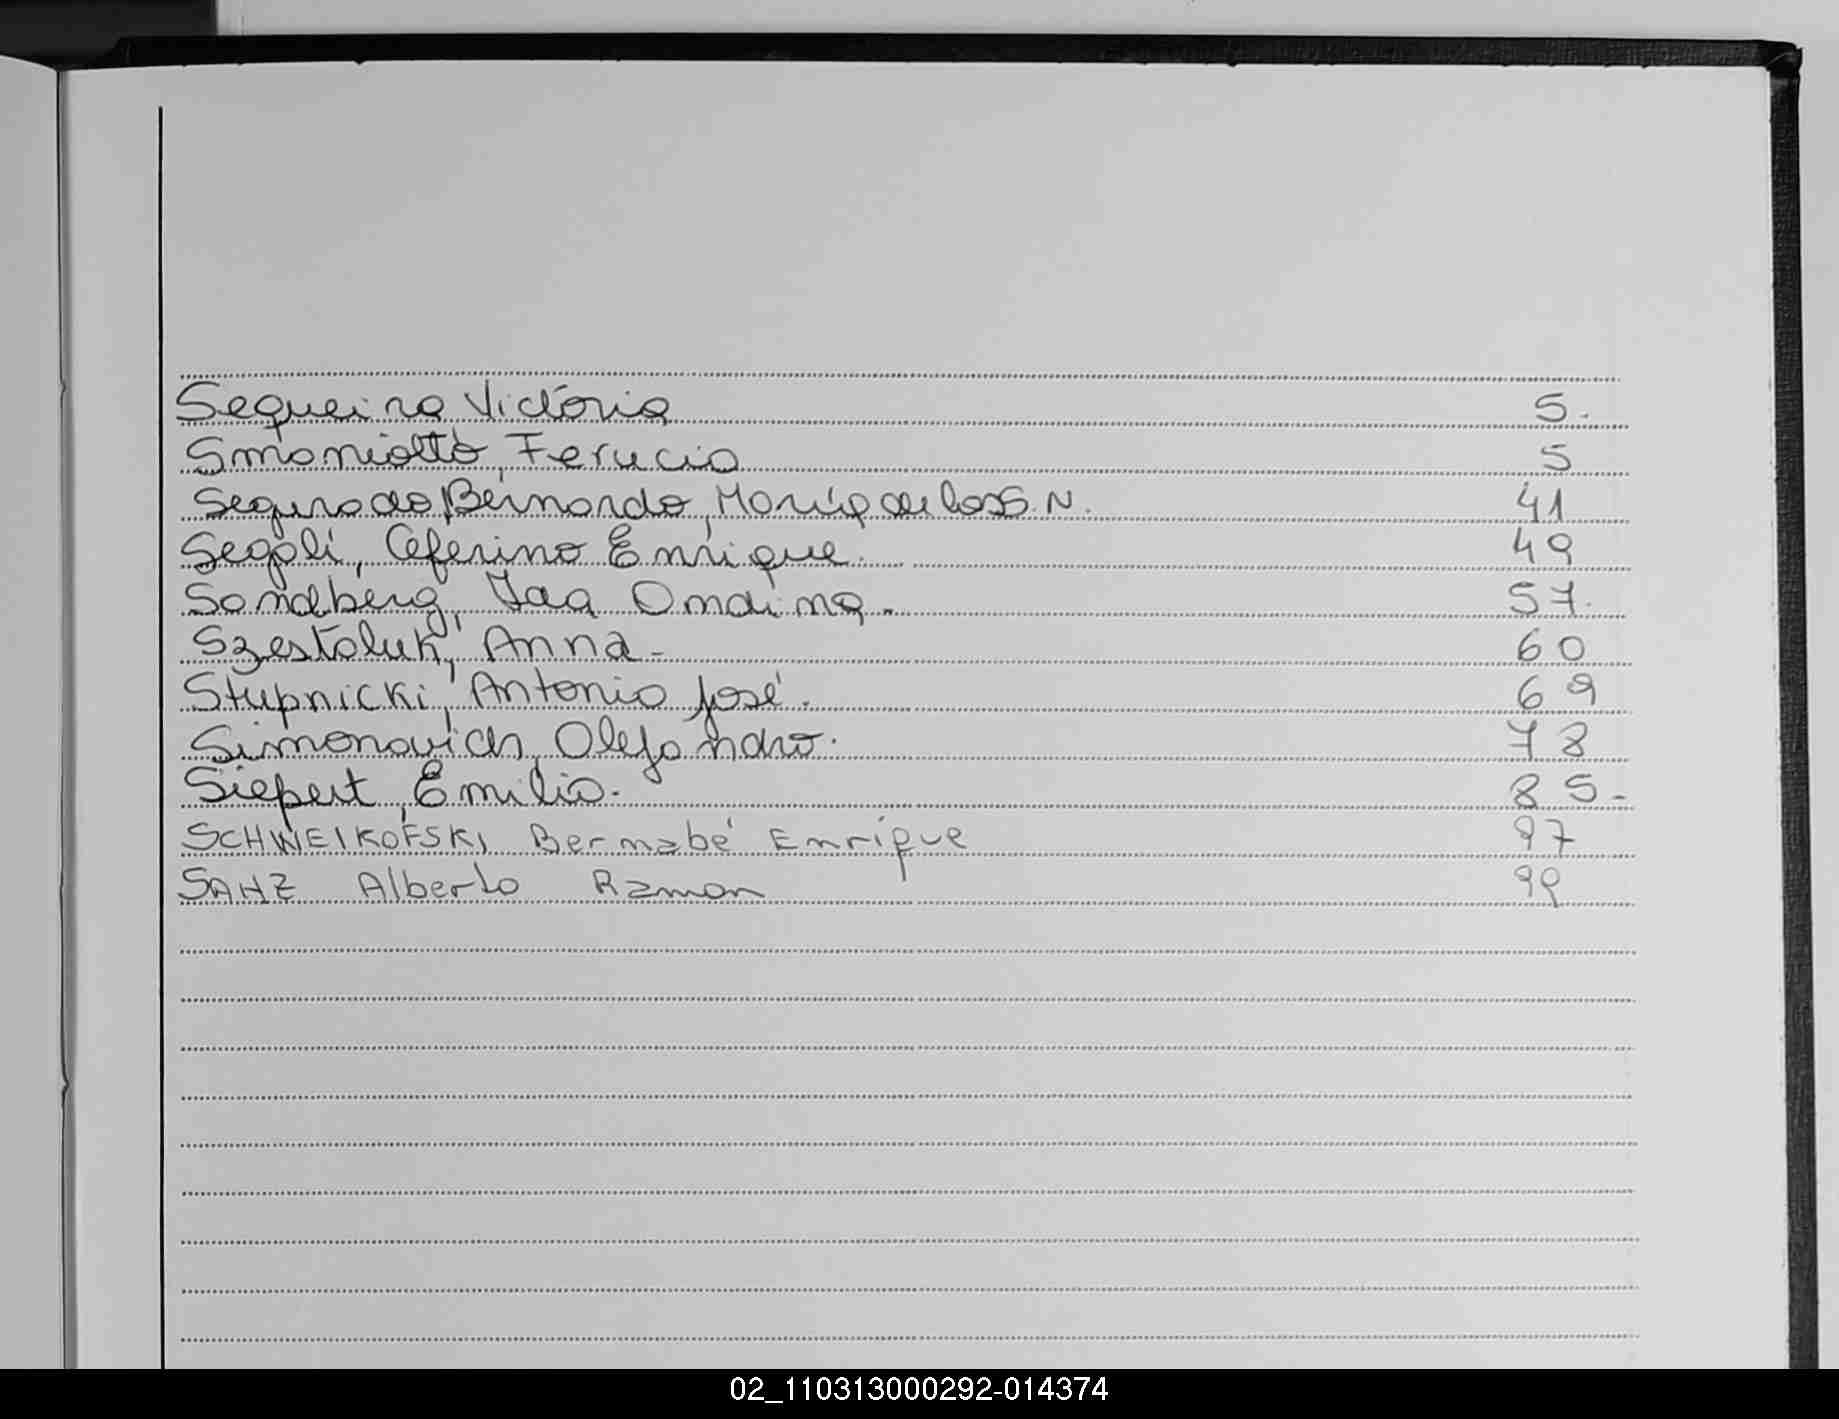 Sequeira Victoria 5.
Smoniotto, Ferucio 5
Segurado Bernardo, María de los S. N. 41
Segoli, Ceferino Enrique. 49
Sandberg, Ondina. 57.
Szestoluk, Anna - 60
Stupnicki, Antonio José. 69
Simonovich, Alejandro. 78
Siepert, Emilio. 85-
SCHWEIKOFSKI Bernabé Enrique 97
SAHZ Alberto Ramon 99
02_110313000292-014374